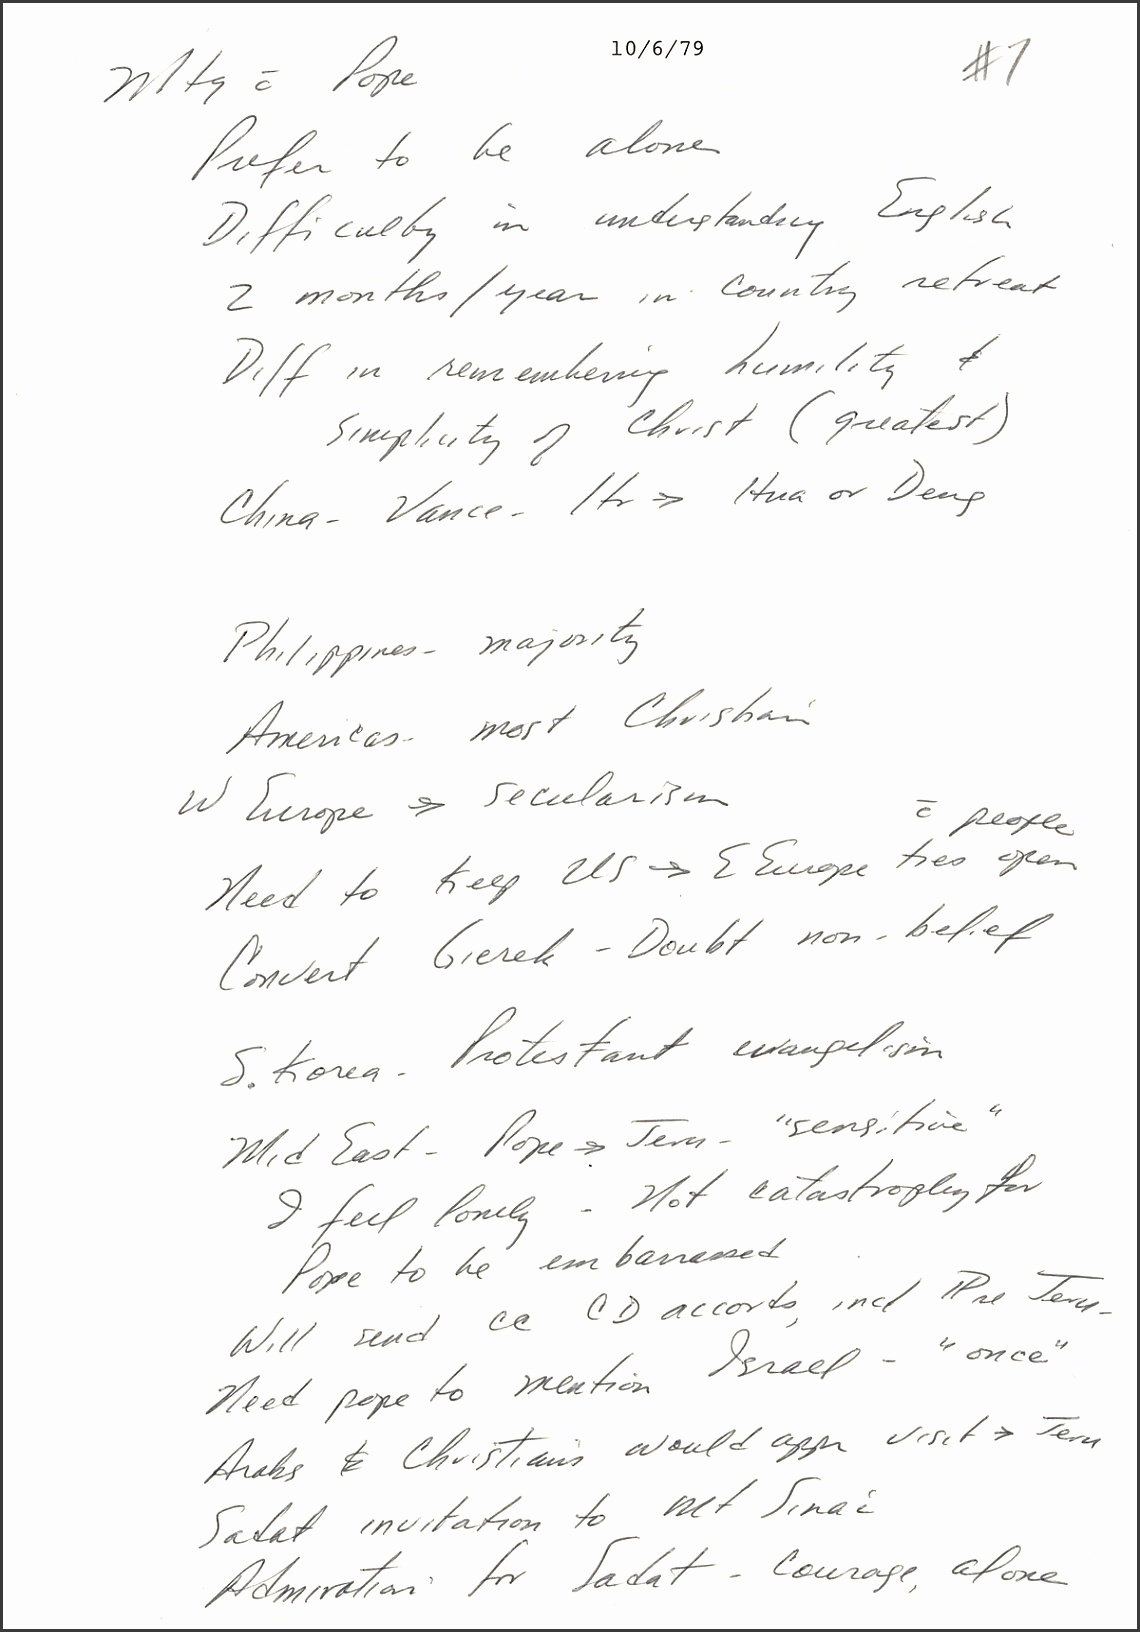 10/6/79
#1
Mtg c̄ Pope
Prefer to be alone
Difficulty in understanding English
2 months/year in country retreat
Diff in remembering humility &
simplicity of Christ (greatest)
China - Vance - ltr → Hua or Deng
Philippines - majority
Americas - most Christian
W Europe → secularism
c̄ people
Need to keep US → E Europe ties open
Convert Gierek - Doubt non-belief
S. Korea - Protestant evangelism
Mid East - Pope → Jeru - "sensitive"
I feel lonely - Not catastrophy for
Pope to be embarrassed
Will send cc CD accords, incl Re Jeru -
Need pope to mention Israel - "once"
Arabs & Christians would appr visit → Jeru
Sadat invitation to Mt Sinai
Admiration for Sadat - courage, alone